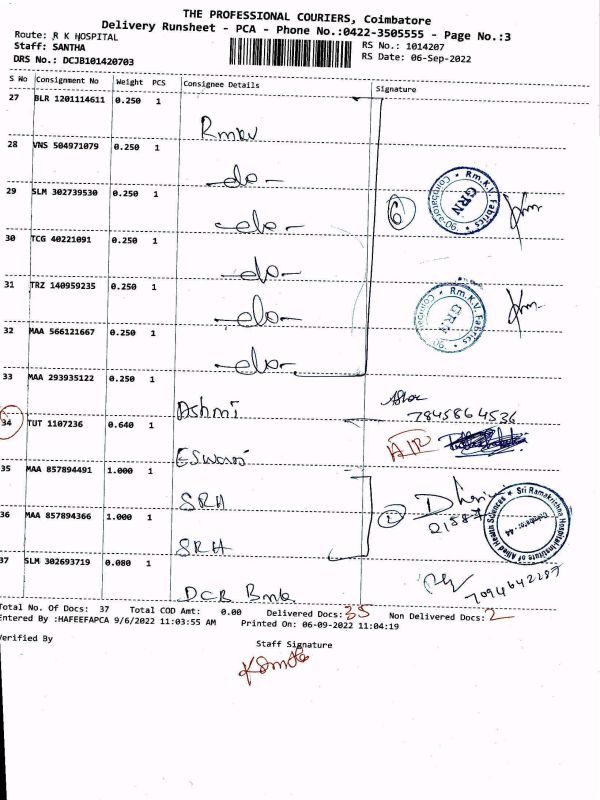 THE PROFESSIONAL COURIERS, Coimbatore
Delivery Runsheet - PCA - Phone No.:0422-3505555 - Page No.:3
Route: R K HOSPITAL
RS No.: 1014207
Staff: SANTHA
RS Date: 06-Sep-2022
DRS No.: DCJB101420703
S No Consignment No Weight PCS Consignee Details Signature
27 BLR 1201114611 0.250 1
Rmkv
28 VNS 504971079 0.250 1
-do-
29 SLM 302739530 0.250 1
-do-
6
Rm.K.V. Fabrics
GRN
Coimbatore-90
30 TCG 40221091 0.250 1
-do-
31 TRZ 140959235 0.250 1
-do-
Rm.K.V. Fabrics
GRN
32 MAA 566121667 0.250 1
-do-
33 MAA 293935122 0.250 1
Ashmi
7845864536
34 TUT 1107236 0.640 1
Eswari
35 MAA 857894491 1.000 1
SRH
2
21587
36 MAA 857894366 1.000 1
SRH
Sri Ramakrishna Hospital Institute of Allied Health Sciences
Coimbatore - 44
37 SLM 302693719 0.080 1
DCB Bank
7094642287
Total No. Of Docs: 37 Total COD Amt: 0.00 Delivered Docs: 35 Non Delivered Docs: 2
Entered By :HAFEEFAPCA 9/6/2022 11:03:55 AM Printed On: 06-09-2022 11:04:19
Verified By
Staff Signature